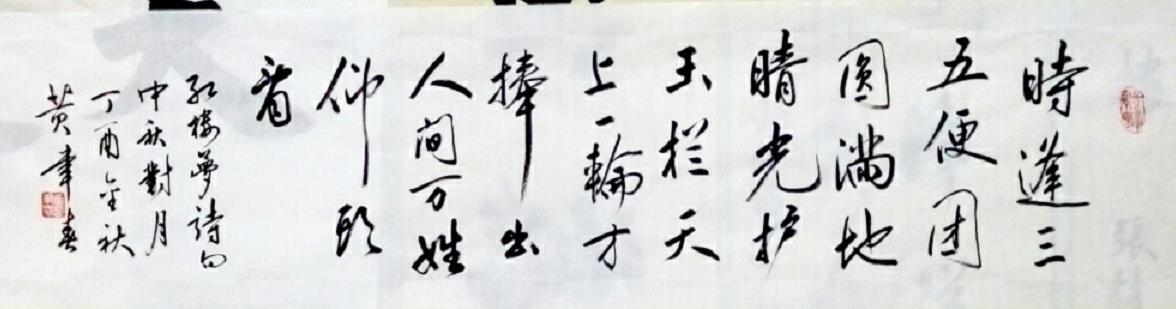 時逢三
五便团
圆満地
晴光护
玉栏天
上一輪才
捧出
人间万姓
仰頭
看
红楼夢詩句
中秋對月
丁酉金秋
黄聿春